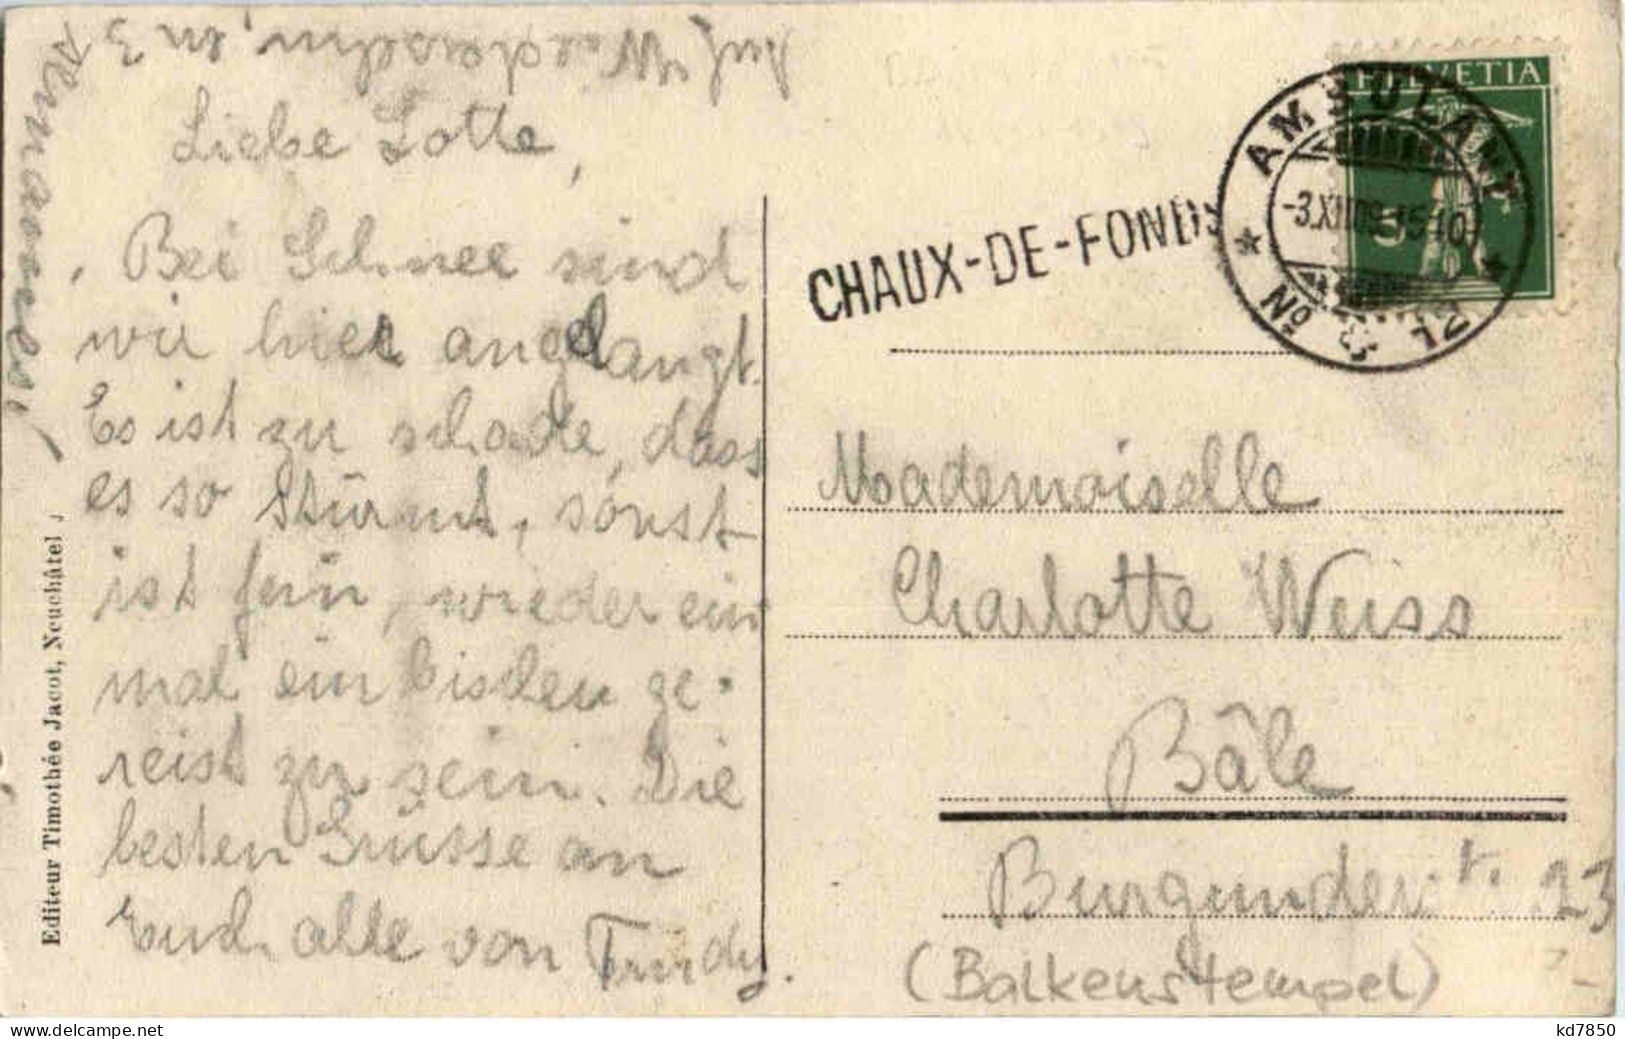 Liebe Lotte,
Bei Schnee sind
wir hier angelangt.
Es ist zu schade, dass
es so stürmt, sonst
ist fein, wieder ein
mal ein bischen ge-
reist zu sein. Die
besten Grüsse an
Euch alle von Trudy.
Auf Wiedersehn, in 3
Editeur Timothée Jacot, Neuchâtel
HELVETIA
5
AMBULANT
-3.XII.09.15-10
No 12
CHAUX-DE-FONDS
Mademoiselle
Charlotte Weiss
Bâle
Burgunderst. 23
(Balkenstempel)
kd7850